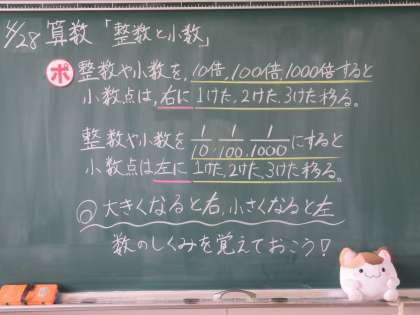 4/28 算数「整数と小数」
ポ 整数や小数を、10倍、100倍、1000倍すると
小数点は、右に1けた、2けた、3けた移る。
整数や小数を 1/10, 1/100, 1/1000 にすると
小数点は左に1けた、2けた、3けた移る。
◎大きくなると右、小さくなると左
数のしくみを覚えておこう!